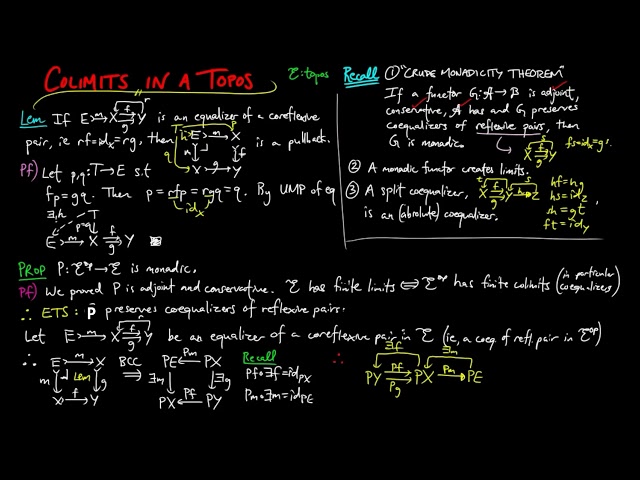 COLIMITS IN A TOPOS
ℰ: topos
Lem If E →m X ⇉ Y (f, g, r) is an equalizer of a coreflexive
pair, ie rf=idx=rg, then E →m X, m ↓ ↓ f, X →g Y is a pullback.
Pf) Let p,q: T → E s.t
fp=gq. Then p=rfp=rgq=q. By UMP of eq
idx
∃!h T
p=q
E →m X ⇉ Y (f, g)
Recall ① "CRUDE MONADICITY THEOREM"
If a functor G: A → B is adjoint,
conservative, A has and G preserves
coequalizers of reflexive pairs, then
G is monadic.
X ⇉ Y (f, g, s) fs=idx=gs
② A monadic functor creates limits.
③ A split coequalizer, X ⇉ Y →h Z (f, g, t, s)
is an (absolute) coequalizer.
hf=hg
hs=idz
sh=gt
ft=idy
PROP P: ℰ^op → ℰ is monadic.
Pf) We proved P is adjoint and conservative. ℰ has finite limits ⇔ ℰ^op has finite colimits (in particular coequalizers)
∴ ETS: P preserves coequalizers of reflexive pairs.
Let E →m X ⇉ Y (f, g, r) be an equalizer of a coreflexive pair in ℰ (ie, a coeq of refl. pair in ℰ^op)
∴ E →m X, m ↓ Lem ↓ g, X →f Y
BCC ⇒
PE ←Pm PX, ∃m ↓ ↓ ∃g, PX ←Pf PY
Recall
Pf∘∃f=id_PX
Pm∘∃m=id_PE
∴ PY ⇉ PX →Pm PE (Pf, Pg, ∃f, ∃m)